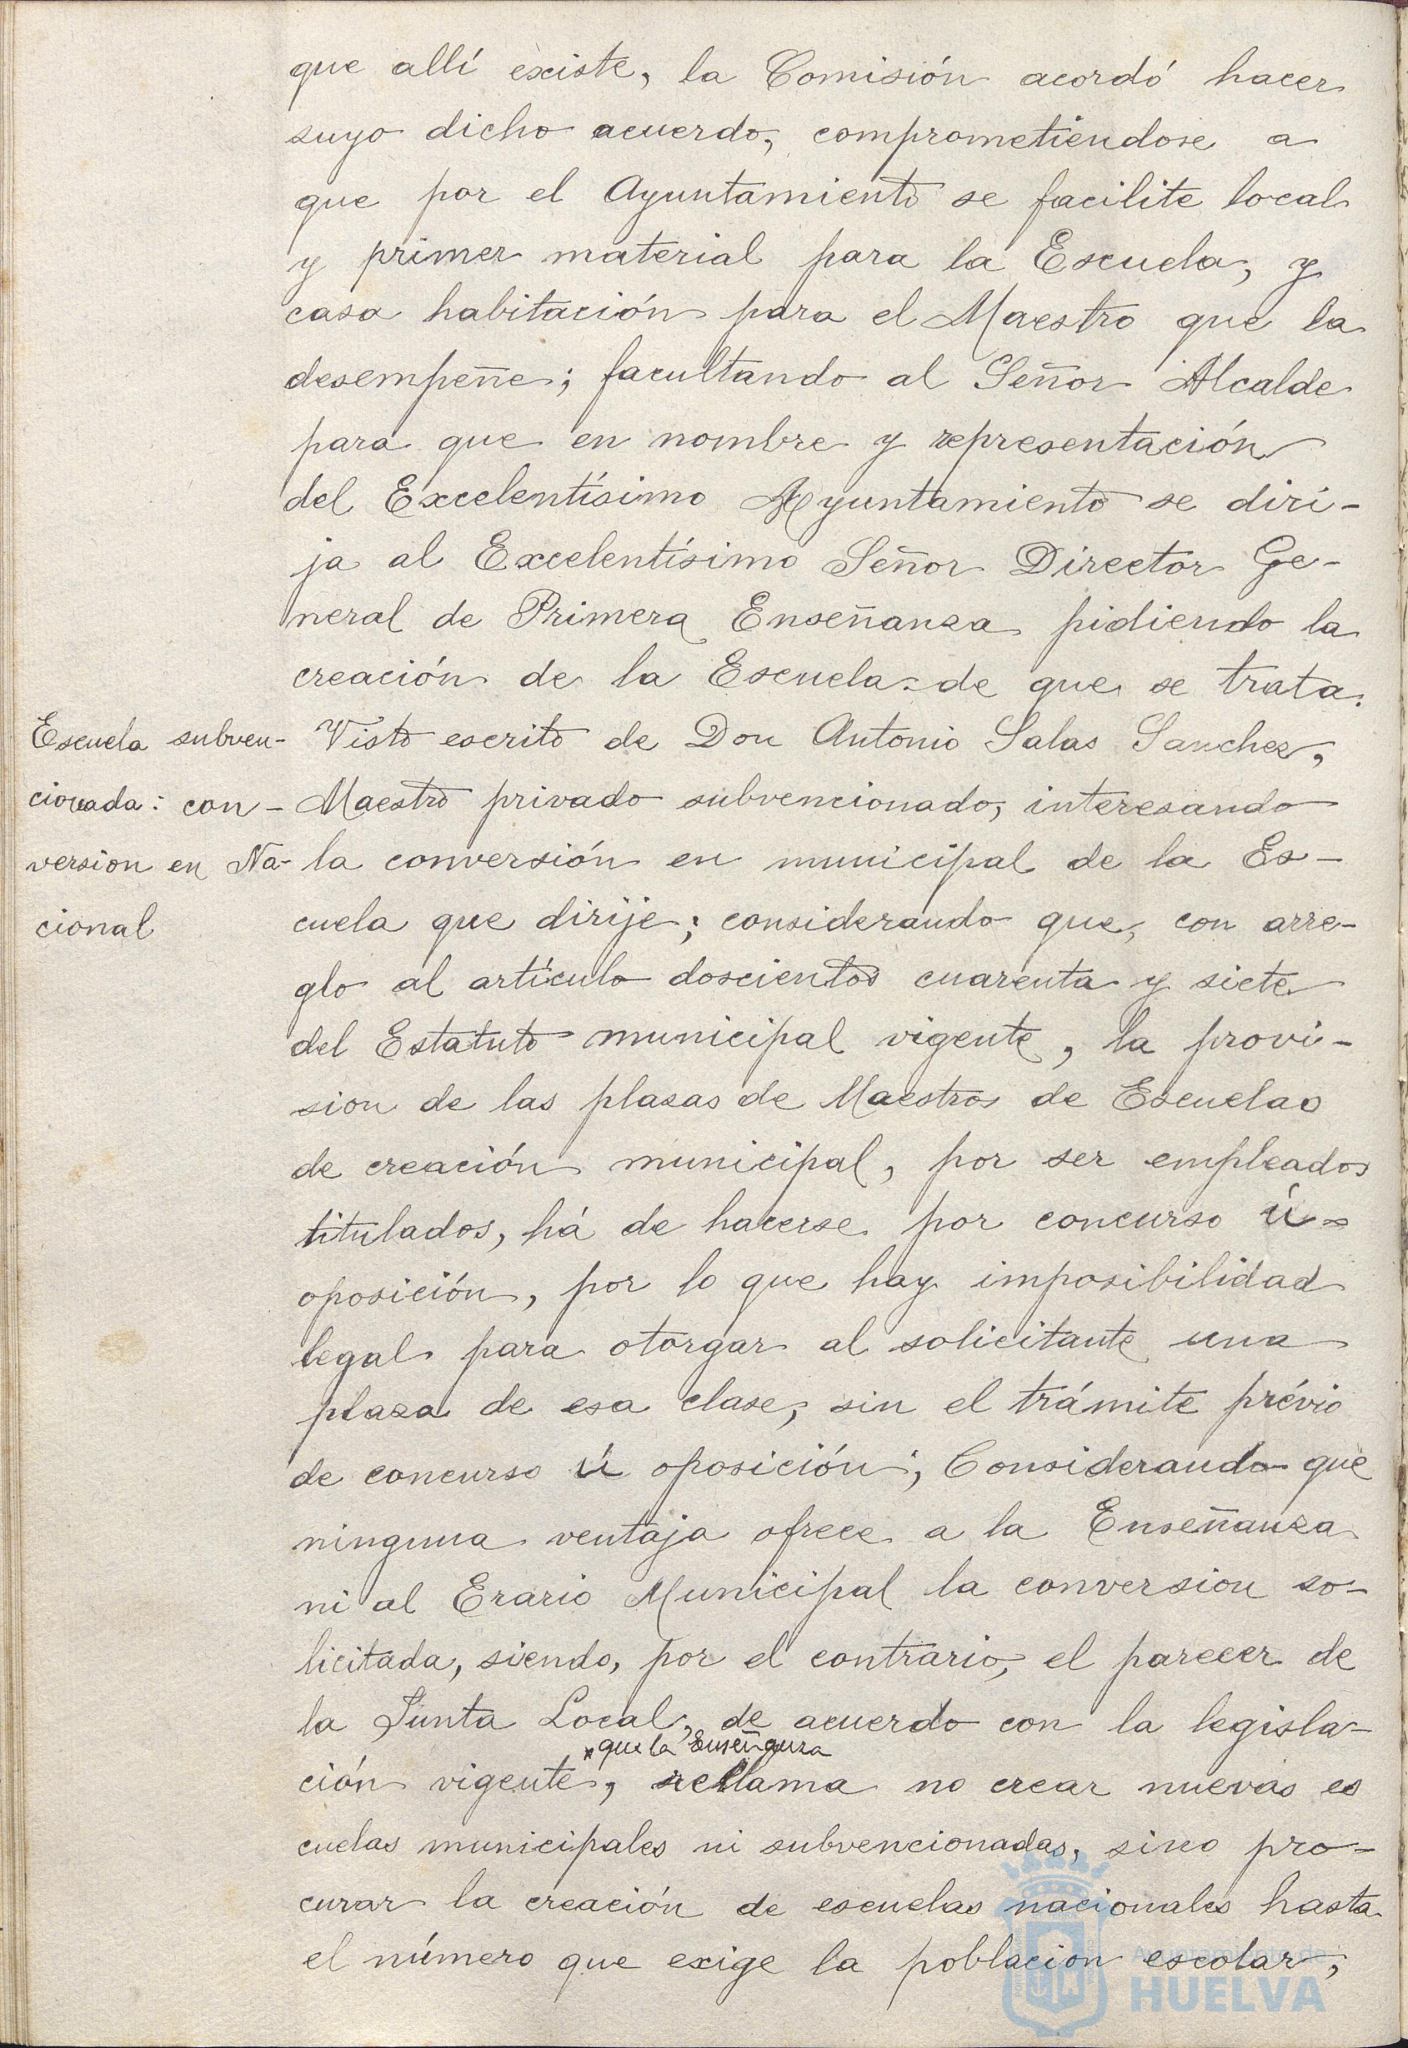 que allí existe, la Comisión acordó hacer
suyo dicho acuerdo, comprometiendose a
que por el Ayuntamiento se facilite local
y primer material para la Escuela, y
casa habitación para el Maestro que la
desempeñe; facultando al Señor Alcalde
para que en nombre y representación
del Excelentísimo Ayuntamiento se diri-
ja al Excelentísimo Señor Director Ge-
neral de Primera Enseñanza pidiendo la
creación de la Escuela de que se trata.
Escuela subven-
cionada: con-
version en Na-
cional
Visto escrito de Don Antonio Salas Sanchez,
Maestro privado subvencionado, interesando
la conversión en municipal de la Es-
cuela que dirije; considerando que, con arre-
glo al artículo doscientos cuarenta y siete
del Estatuto municipal vigente, la provi-
sion de las plazas de Maestros de Escuelas
de creación municipal, por ser empleados
titulados, há de hacerse por concurso ú-
oposición, por lo que hay imposibilidad
legal para otorgar al solicitante una
plaza de esa clase, sin el trámite prévio
de concurso ú oposición; Considerando que
ninguna ventaja ofrece a la Enseñanza
ni al Erario Municipal la conversion so-
licitada, siendo, por el contrario, el parecer de
la Junta Local, de acuerdo con la legisla-
que la Enseñanza
ción vigente, reclama no crear nuevas es
cuelas municipales ni subvencionadas, sino pro-
curar la creación de escuelas nacionales hasta
el número que exige la poblacion escolar;
Ayuntamiento de
HUELVA